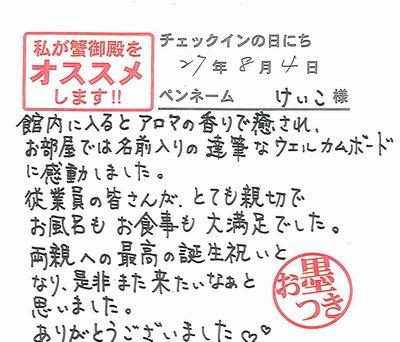 私が蟹御殿を
オススメ
します!!
チェックインの日にち
27年8月4日
ペンネーム けいこ 様
館内に入るとアロマの香りで癒され、
お部屋では名前入りの達筆なウェルカムボード
に感動しました。
従業員の皆さんが、とても親切で
お風呂もお食事も大満足でした。
両親への最高の誕生祝いと
なり、是非また来たいなぁと
思いました。
ありがとうございました♡♡
お墨
つき